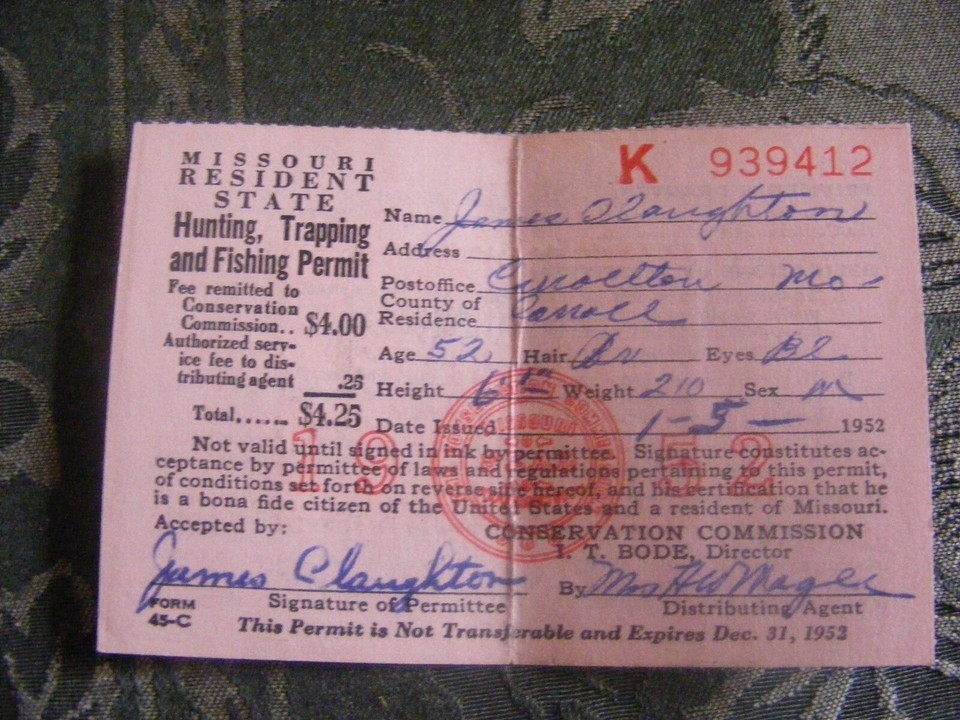 K 939412
MISSOURI
RESIDENT
STATE
Hunting, Trapping
and Fishing Permit
Fee remitted to
Conservation
Commission.. $4.00
Authorized serv-
ice fee to dis-
tributing agent .25
Total...... $4.25
Name James Claughton
Address
Postoffice Carrollton Mo-
County of
Residence Carroll
Age 52 Hair Br Eyes Bl
Height Weight 210 Sex M
Date Issued 1-5- 1952
1952
Not valid until signed in ink by permittee. Signature constitutes ac-
ceptance by permittee of laws and regulations pertaining to this permit,
of conditions set forth on reverse side hereof, and his certification that he
is a bona fide citizen of the United States and a resident of Missouri.
Accepted by:
CONSERVATION COMMISSION
I. T. BODE, Director
James Claughton
By Mrs H W Magee
FORM
45-C
Signature of Permittee
Distributing Agent
This Permit is Not Transferable and Expires Dec. 31, 1952